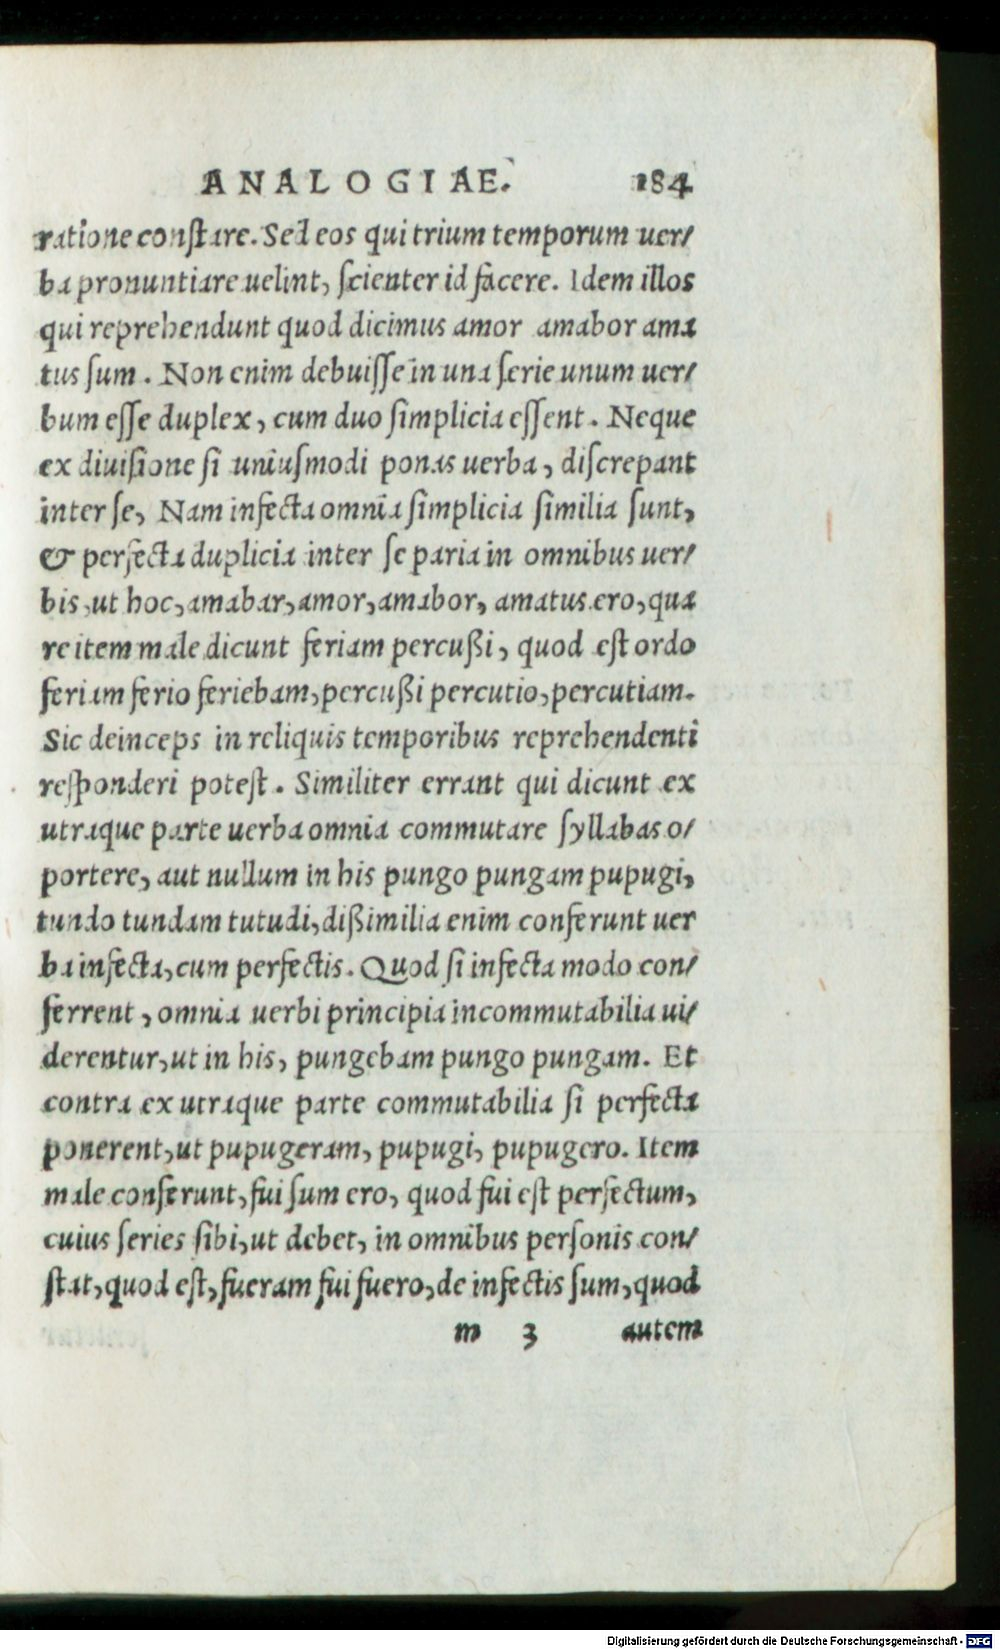 ANALOGIAE. 184
ratione conſtare. Sed eos qui trium temporum uer/
ba pronuntiare uelint, ſcienter id facere. Idem illos
qui reprehendunt quod dicimus amor amabor ama
tus ſum. Non enim debuiſſe in una ſerie unum uer/
bum eſſe duplex, cum duo ſimplicia eſſent. Neque
ex diuiſione ſi uniuſmodi ponas uerba, diſcrepant
inter ſe, Nam infecta omnia ſimplicia ſimilia ſunt,
& perfecta duplicia inter ſe paria in omnibus uer/
bis, ut hoc, amabar, amor, amabor, amatus ero, qua
re item male dicunt feriam percußi, quod eſt ordo
feriam ferio feriebam, percußi percutio, percutiam.
Sic deinceps in reliquis temporibus reprehendenti
reſponderi poteſt. Similiter errant qui dicunt ex
utraque parte uerba omnia commutare ſyllabas o/
portere, aut nullum in his pungo pungam pupugi,
tundo tundam tutudi, dißimilia enim conferunt uer
ba infecta, cum perfectis. Quod ſi infecta modo con/
ferrent, omnia uerbi principia incommutabilia ui/
derentur, ut in his, pungebam pungo pungam. Et
contra ex utraque parte commutabilia ſi perfecta
ponerent, ut pupugeram, pupugi, pupugero. Item
male conferunt, fui ſum ero, quod fui eſt perfectum,
cuius ſeries ſibi, ut debet, in omnibus perſonis con/
ſtat, quod eſt, fueram fui fuero, de infectis ſum, quod
m 3 autem
Digitalisierung gefördert durch die Deutsche Forschungsgemeinschaft - DFG